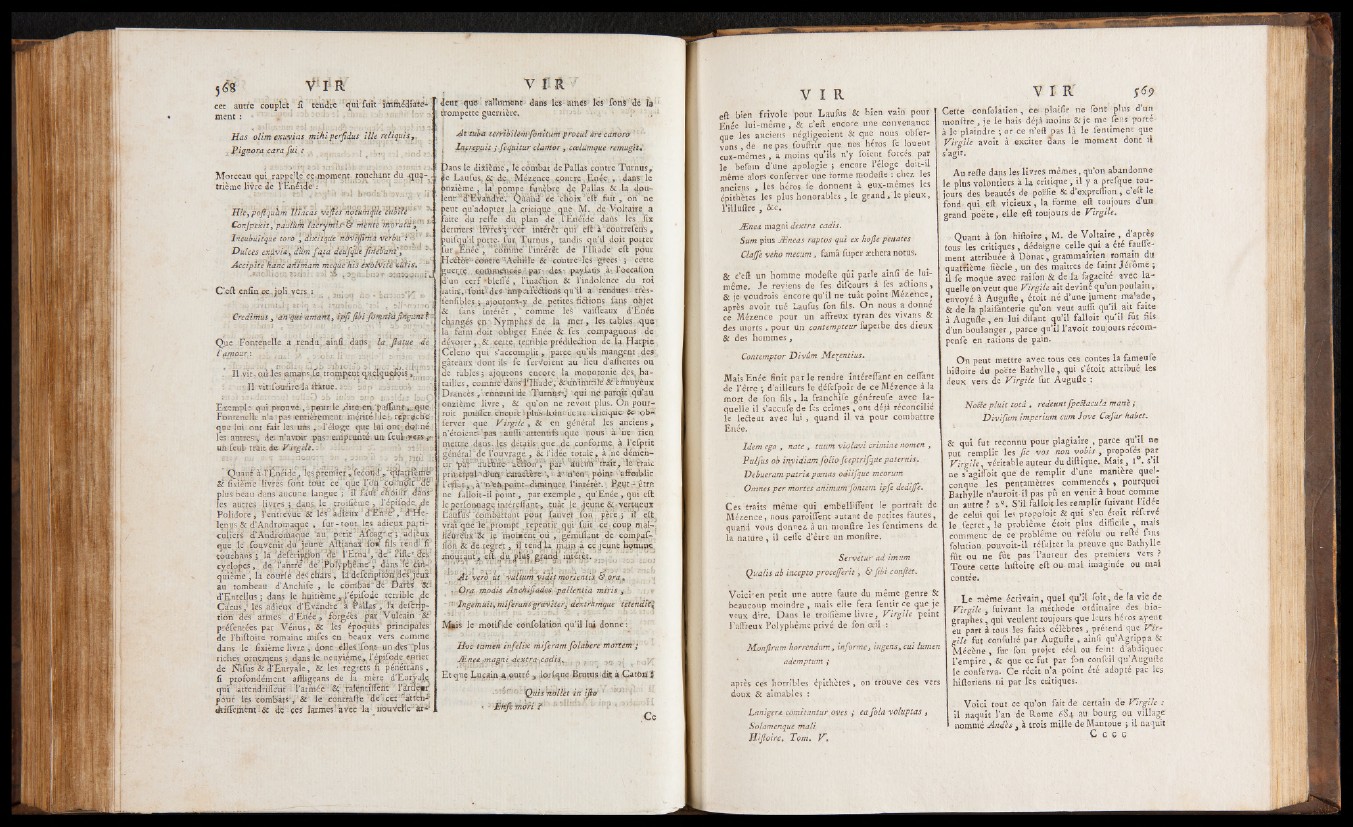 568 VIR
cet autre couplet si tendre qui suit immédiate-
ment :
Has olim exuvias mihi perfidus ille reliquit,
Pignora cara sui :
Morceau qui rappelle ce moment touchant du qua-
trième livre de l'Énéide :
Hic, postquam Iliacas vestes notumque cubile
Conspexit, paulùm lacrymis & mente morata,
Incubuitque toro, dixitque novissima verba :
Dulces exuviæ, dùm fata deusque sinebant,
Accipite hanc animam meque his exolvite curis.
C'est enfin ce joli vers :
Credimus, an qui amant, ipsi sibi somnia fingunt ?
Que Fontenelle a rendu ainsi dans la statue de
l'amour :
Il vit où les amans se trompent quelquefois,
Il vit sourire la statue.
Exemple qui prouve, pour le dire en passant, que
Fontenelle n'a pas entièrement mérité le reproche
que lui ont fait les uns, l'éloge que lui ont donné
les autres, de n'avoir pas emprunté un seul vers,
un seul trait de Virgile.
Quant à l'Énéide, les premier, second, quatrième
& sixième livres sont tout ce que l'on connoît de
plus beau dans aucune langue ; il faut choisir dans
les autres ; dans le troisième, l'épisode de
Polidore, l'entrevue & les adieux d'Énée, d'He-
lenus & d'Andromaque, sur-tout les adieux parti-
culiers d'Andromaque au petit Ascagne ; adieux
que le souvenir du jeune Astianax son fils rend si
touchans ; la description de l'Etna, de l'isle des
cyclopes, de l'antre de Polyphême ; dans le cin-
quième, la course des chars, la description des jeux
au tombeau d'Anchise, le combat de Darès &
d'Entellus ; dans le huitième, l'épisode terrible de
Cacus, les adieux d'Évandre à Pallas, la descrip-
tion des armes d'Énée, forgées par Vulcain &
présentées par Vénus, & les époques principales
de l'histoire romaine mises en beaux vers comme
dans le sixième livre, dont elles font un des plus
riches ornemens ; dans le neuvième, l'épisode entier
de Nisus & d'Euryale, & les regrets si pénétrans,
si profondément affligeans de la mère d'Euryale
qui attendrissent l'armée & ralentissent l'ardeur
pour les combats, & le contraste de cet atten-
drissement & de ces larmes avec la nouvelle ar-
VIR
deur que rallument dans les ames les sons de la
trompette guerrière.
At tuba terribilem sonitum procul ære canoro
Increpuit ; sequitur clamor, cœlumque remugit.
Dans le dixième, le combat de Pallas contre Turnus,
de Lausus & de Mézence contre Énée, dans le
onzième, la pompe funèbre de Pallas & la dou-
leur d'Evandre. Quand ce choix est fait, on ne
peut qu'adopter la critique que M. de Voltaire a
faite du reste du plan de l'Énéide dans les six
derniers livres ; cet intérêt qui est à contresens,
puisqu'il porte sur Turnus, tandis qu'il doit porter
sur Énée, comme l'intérêt de l'Iliade est pour
Hector contre Achille & contre les grecs ; cette
guerre commencée par des paysans à l'occasion
d'un cerf blessé, l'inaction & l'indolence du roi
Latin, sont des imperfections qu'il a rendues très-
sensibles ; ajoutons-y de petites fictions sans objet
& sans intérêt, comme les vaisseaux d'Énée
changés en Nymphes de la mer, les tables que
la faim doit obliger Énée & ses compagnons de
dévorer, & cette terrible prédilection de la Harpie
Celeno qui s'accomplit, parce qu'ils mangent des
gâteaux dont ils se servoient au lieu d'assiettes ou
de tables ; ajoutons encore la monotonie des ba-
tailles, comme dans l'Iliade, & un inutile & ennuyeux
Drancès, ennemi de Turnus, qui ne paroît qu'au
onzième livre, & qu'on ne revoit plus. On pour-
roit pousser encore plus loin cette critique & ob-
server que Virgile, & en général les anciens,
n'étoient pas aussi attentifs que nous à ne rien
mettre dans les détails que de conforme à l'esprit
général de l'ouvrage, & l'idée totale, à ne démen-
tir par aucune action, par aucun trait, le trait
principal d'un caractère, à n'en point affoiblir
l'effet, à n'en point diminuer l'intérêt. Peut-être
ne falloit-il point, par exemple, qu'Énée, qui est
le personnage intéressant, tuât le jeune & vertueux
Lausus combattant pour sauver son père ; il est
vrai que le prompt repentir qui suit ce coup mal-
heureux & le moment où, gémissant de compas-
sion & de regret, il tend la main à ce jeune homme
mourant, est du plus grand intérêt.
At verò ut vultum vidit morientis & ora,
Ora modis Anchisiades pallentia miris,
Ingemuit, miserans graviter, dextramque tetendit,
Mais le motif de consolation qu'il lui donne :
Hoc tamen infelix miseram solabere mortem ;
Æneæ magni dextrâ cadis.
Et que Lucain a outré, lorsque Brutus dit à Caton :
Quis nollet in isto
Ense mori ?
Ce
VIR
est bien frivole pour Lausus & bien vain pour
Énée lui-même, & c'est encore une convenance
que les anciens négligeoient & que nous obser-
vons, de ne pas souffrir que nos héros se louent
eux-mêmes, à moins qu'ils n'y soient forcés par
le besoin d'une apologie ; encore l'éloge doit-il
même alors conserver une forme modeste : chez les
anciens, les héros se donnent à eux-mêmes les
épithètes les plus honorables, le grand, le pieux,
l'illustre, &c.
Æneæ magni dextra cadis.
Sum pius Æneas raptos qui ex hoste penates
Classe veho mecum, famâ super æthera notus.
& c'est un homme modeste qui parle ainsi de lui-
même. Je reviens de ses discours à ses actions,
& je voudrois encore qu'il ne tuât point Mézence,
après avoir tué Lausus son fils. On nous a donné
ce Mézence pour un affreux tyran des vivans &
des morts, pour un contempteur superbe des dieux
& des hommes,
Contemptor Divûm Mezentius.
Mais Énée finit par le rendre intéressant en cessant
de l'être ; d'ailleurs le désespoir de ce Mézence à la
mort de son fils, la franchise généreuse avec la-
quelle il s'accuse de ses crimes, ont déjà réconcilié
le lecteur avec lui, quand il va pour combattre
Énée.
Idem ego, nate, tuum violavi crimine nomen,
Pulsus ob invidiam solio sceptrisque paternis.
Debueram patriæ pœnas odiisque meorum
Omnes per mortes animam sontem ipse dedisse.
Ces traits même qui embellissent le portrait de
Mézence, nous paroissent autant de petites fautes,
quand vous donnez à un monstre les sentimens de
la nature, il cesse d'être un monstre.
Servetur ad imum
Qualis ab incepto processerit, & sibi constet.
Voici en petit une autre faute du même genre &
beaucoup moindre, mais elle fera sentir ce que je
veux dire. Dans le troisième livre, Virgile peint
l'affreux Polyphême privé de son œil :
Monstrum horrendum, informe, ingens, cui lumen
ademptum ;
après ces horribles épithètes, on trouve ces vers
doux & aimables :
Lanigeræ comitantur oves ; ea sola voluptas,
Solamenque mali
Histoire. Tom. V.
VIR 569
Cette consolation, ce plaisir ne sont plus d'un
monstre, je le hais déjà moins & je me sens porté
à le plaindre ; or ce n'est pas là le sentiment que
Virgile avoit à exciter dans le moment dont il
s'agit.
Au reste dans les livres mêmes, qu'on abandonne
le plus volontiers à la critique, il y a presque tou-
jours des beautés de poésie & d'expression, c'est le
fond qui est vicieux, la forme est toujours d'un
grand poëte, elle est toujours de Virgile.
Quant à son histoire, M. de Voltaire, d'après
tous les critiques, dédaigne celle qui a été fausse-
ment attribuée à Donat, grammairien romain du
quatrième siècle, un des maîtres de saint Jérôme ;
il se moque avec raison & de la sagacité avec la-
quelle on veut que Virgile ait deviné qu'un poulain,
envoyé à Auguste, étoit né d'une jument malade,
& de la plaisanterie qu'on veut aussi qu'il ait faite
à Auguste, en lui disant qu'il falloit qu'il fût fils
d'un boulanger, parce qu'il l'avoit toujours récom-
pensé en rations de pain.
On peut mettre avec tous ces contes la fameuse
histoire du poëte Bathylle, qui s'étoit attribué les
deux vers de Virgile sur Auguste :
Nocte pluit totâ, redeunt spectacula manè ;
Divisum imperium cum Jove Cæsar habet.
& qui fut reconnu pour plagiaire, parce qu'il ne
put remplir les sic vos non vobis, proposés par
Virgile, véritable auteur du distique. Mais, 1°. s'il
ne s'agissoit que de remplir d'une manière quel-
conque les pentamètres commencés, pourquoi
Bathylle n'auroit-il pas pû en venir à bout comme
un autre ? 2°. S'il falloit les remplir suivant l'idée
de celui qui les proposoit & qui s'en étoit réservé
le secret, le problême étoit plus difficile, mais
comment de ce problême ou résolu ou resté sans
solution pouvoit-il résulter la preuve que Bathylle
fût ou ne fût pas l'auteur des premiers vers ?
Toute cette histoire est ou mal imaginée ou mal
contée.
Le même écrivain, quel qu'il soit, de la vie de
Virgile, suivant la méthode ordinaire des bio-
graphes, qui veulent toujours que leurs héros ayent
eu part à tous les faits célèbres, prétend que Vir-
gile fut consulté par Auguste, ainsi qu'Agrippa &
Mécène, sur son projet réel ou feint d'abdiquer
l'empire, & que ce fut par son conseil qu'Auguste
le conserva. Ce récit n'a point été adopté par les
historiens ni par les critiques.
Voici tout ce qu'on sait de certain de Virgile :
il naquit l'an de Rome 684 au bourg ou village
nommé Andès, à trois mille de Mantoue ; il naquit
C c c c